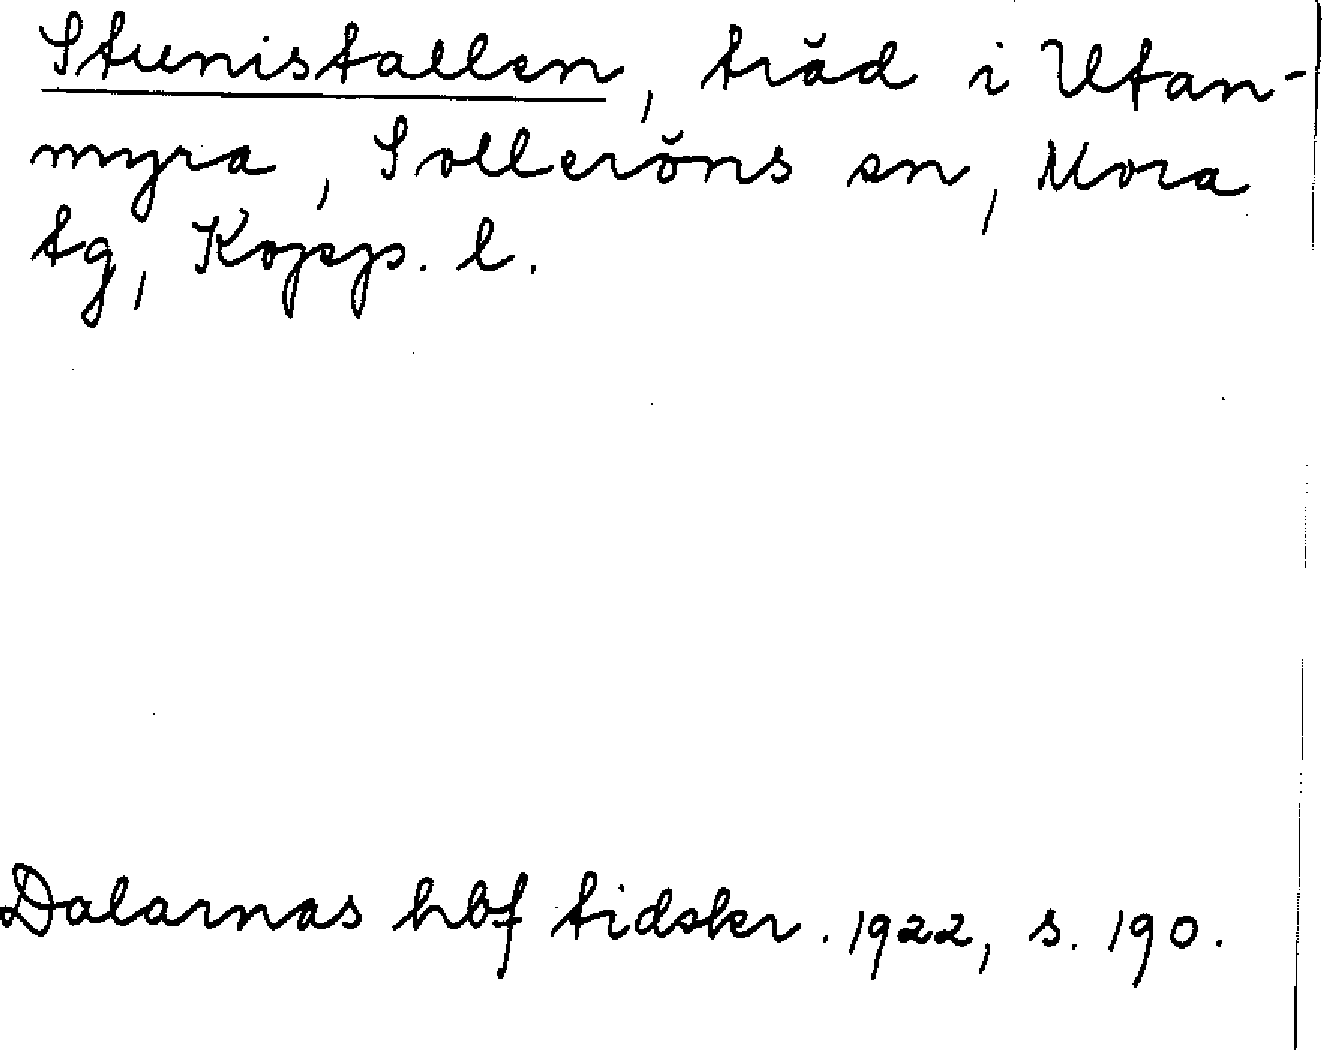 Stunistallen, träd i Utan-
myra, Solleröns sn, Mora
tg, Kopp. l.
Dalarnas hbf tidskr. 1922, s. 190.